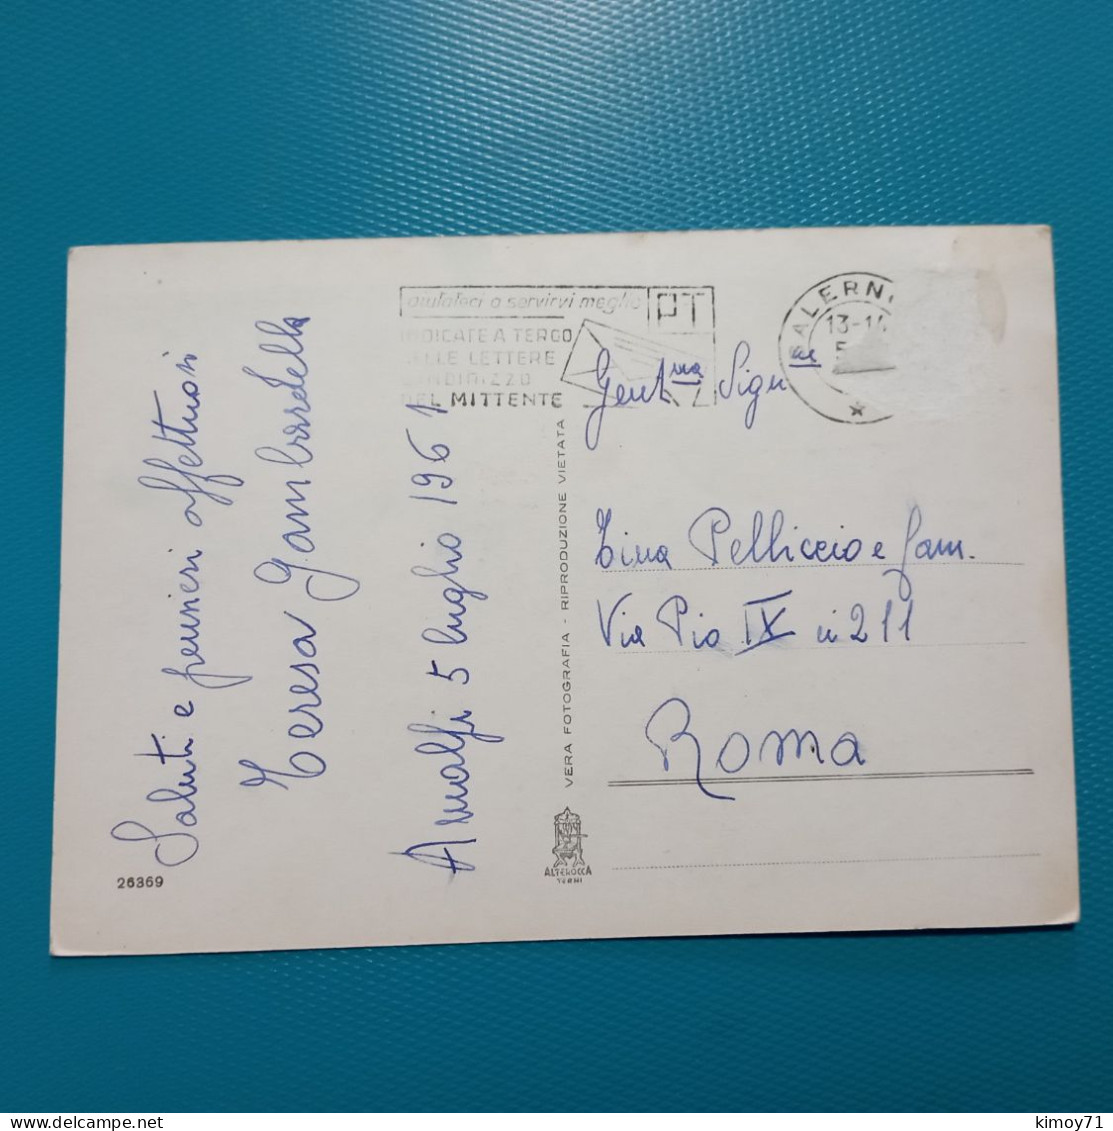 Saluti e pensieri affettuosi
Teresa Gambardella
Amalfi 5 luglio 1961
26369
aiutateci a servirvi meglio
PT
INDICATE A TERGO
DELLE LETTERE
L'INDIRIZZO
DEL MITTENTE
SALERNO
13-14
5
VERA FOTOGRAFIA - RIPRODUZIONE VIETATA
ALTEROCCA
TERNI
Gent.ma Sign.
Tina Pelliccio e fam.
Via Pio IX n 211
Roma
kimoy71